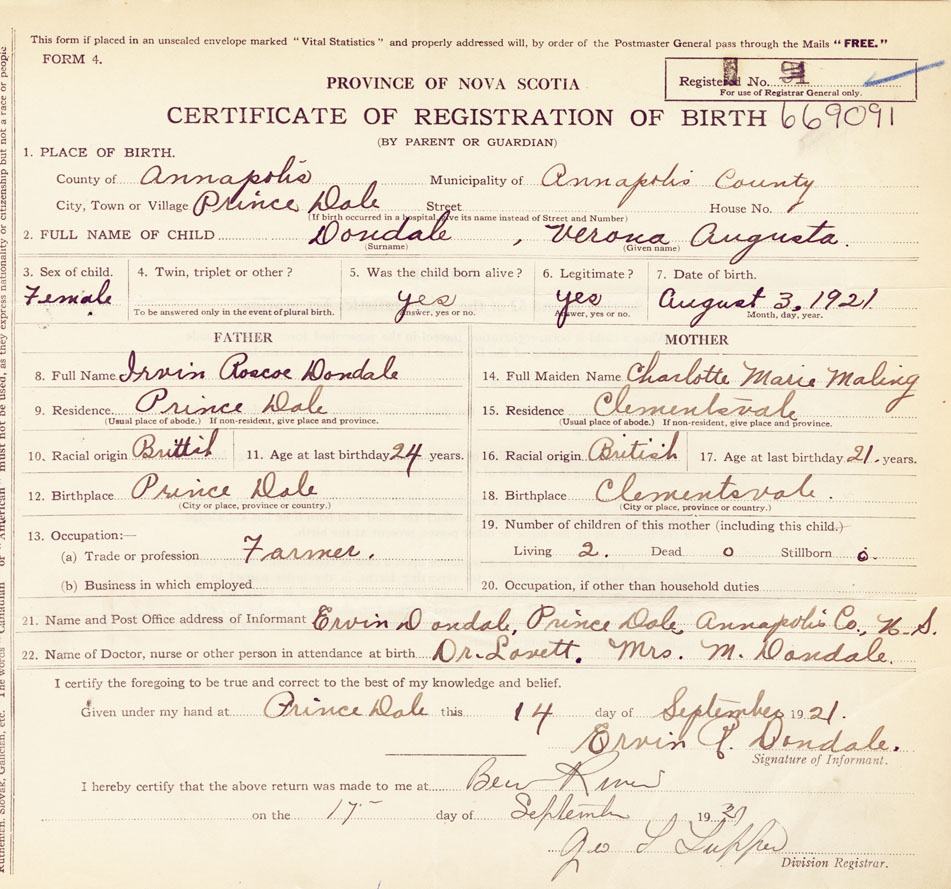 This form if placed in an unsealed envelope marked "Vital Statistics" and properly addressed will, by order of the Postmaster General pass through the Mails "FREE."
FORM 4.
Registered No. 91
For use of Registrar General only.
PROVINCE OF NOVA SCOTIA
CERTIFICATE OF REGISTRATION OF BIRTH 669091
(BY PARENT OR GUARDIAN)
1. PLACE OF BIRTH.
County of Annapolis Municipality of Annapolis County
City, Town or Village Prince Dale Street House No.
(If birth occurred in a hospital, give its name instead of Street and Number)
2. FULL NAME OF CHILD Dondale, Verona Augusta.
(Surname) (Given name)
3. Sex of child. 4. Twin, triplet or other? 5. Was the child born alive? 6. Legitimate? 7. Date of birth.
Female yes yes August 3, 1921.
To be answered only in the event of plural birth. Answer, yes or no. Answer, yes or no. Month, day, year.
FATHER MOTHER
8. Full Name Irvin Roscoe Dondale 14. Full Maiden Name Charlotte Marie Maling
9. Residence Prince Dale 15. Residence Clementsvale
(Usual place of abode.) If non-resident, give place and province. (Usual place of abode.) If non-resident, give place and province.
10. Racial origin Brittish 11. Age at last birthday 24 years. 16. Racial origin British 17. Age at last birthday 21. years.
12. Birthplace Prince Dale 18. Birthplace Clementsvale.
(City or place, province or country.) (City or place, province or country.)
13. Occupation:— 19. Number of children of this mother (including this child.)
(a) Trade or profession Farmer. Living 2. Dead 0 Stillborn 0.
(b) Business in which employed 20. Occupation, if other than household duties
21. Name and Post Office address of Informant Ervin Dondale, Prince Dale, Annapolis Co., N.S.
22. Name of Doctor, nurse or other person in attendance at birth Dr. Lovett. Mrs. M. Dondale.
I certify the foregoing to be true and correct to the best of my knowledge and belief.
Given under my hand at Prince Dale this 14 day of September 1921.
Ervin R. Dondale.
Signature of Informant.
I hereby certify that the above return was made to me at Bear River
on the 17- day of September 19
Geo L Tupper
Division Registrar.
must not be used, as they express nationality or citizenship but not a race or people
Ruthenian, Slovak, Galician, etc. The words "Canadian" or "American"